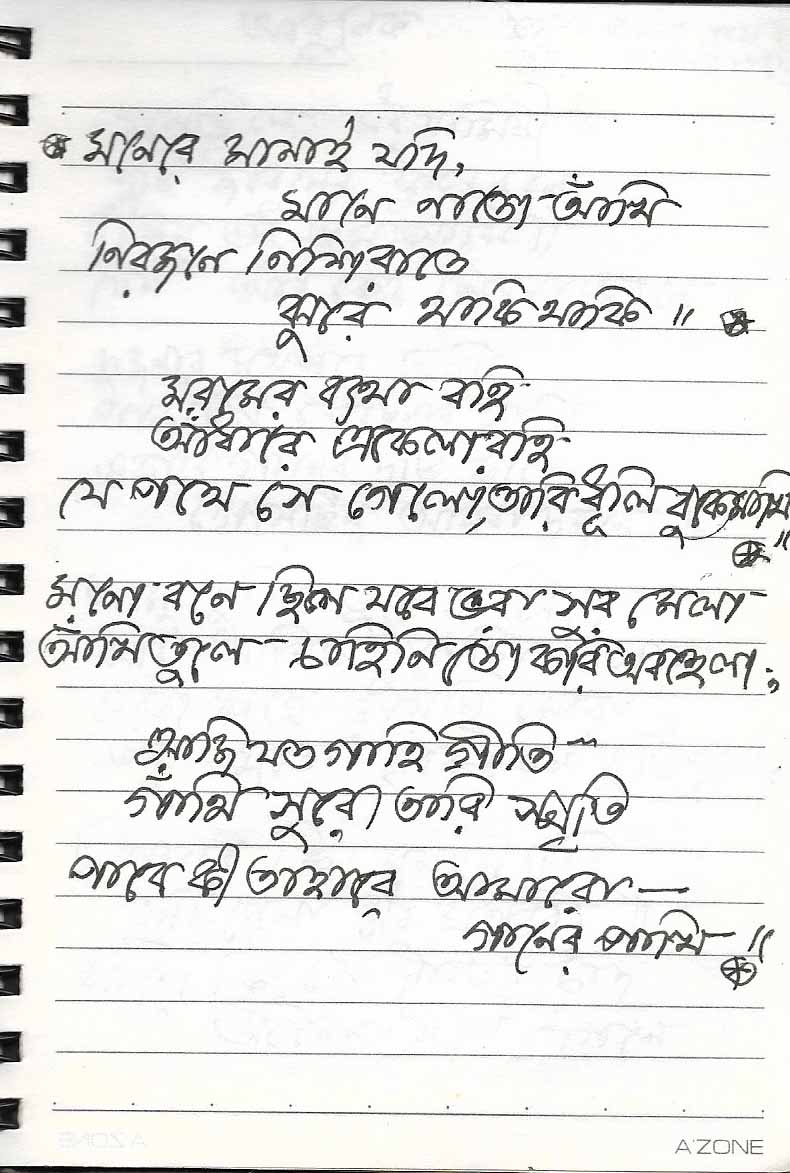 মনেরে মানাই যদি,
মানে নাতো আঁখি
নিরজনে নিশিরাতে
ঝুরে থাকি থাকি ॥
মরমের ব্যথা বহি
আঁধারে একেলা রহি
যে পথে সে গেলো, তারি ধূলি বুকে মাখি ॥
মনো বনে ছিল যবে ভরা সুর মেলা
আঁখি তুলে চাহিনি তো করি অবহেলা;
আজি যত গাহি গীতি...
গাঁথি সুরে তারি স্মৃতি
পাবে কী তাহারে আমারো—
গানের পাখি ॥
A'ZONE